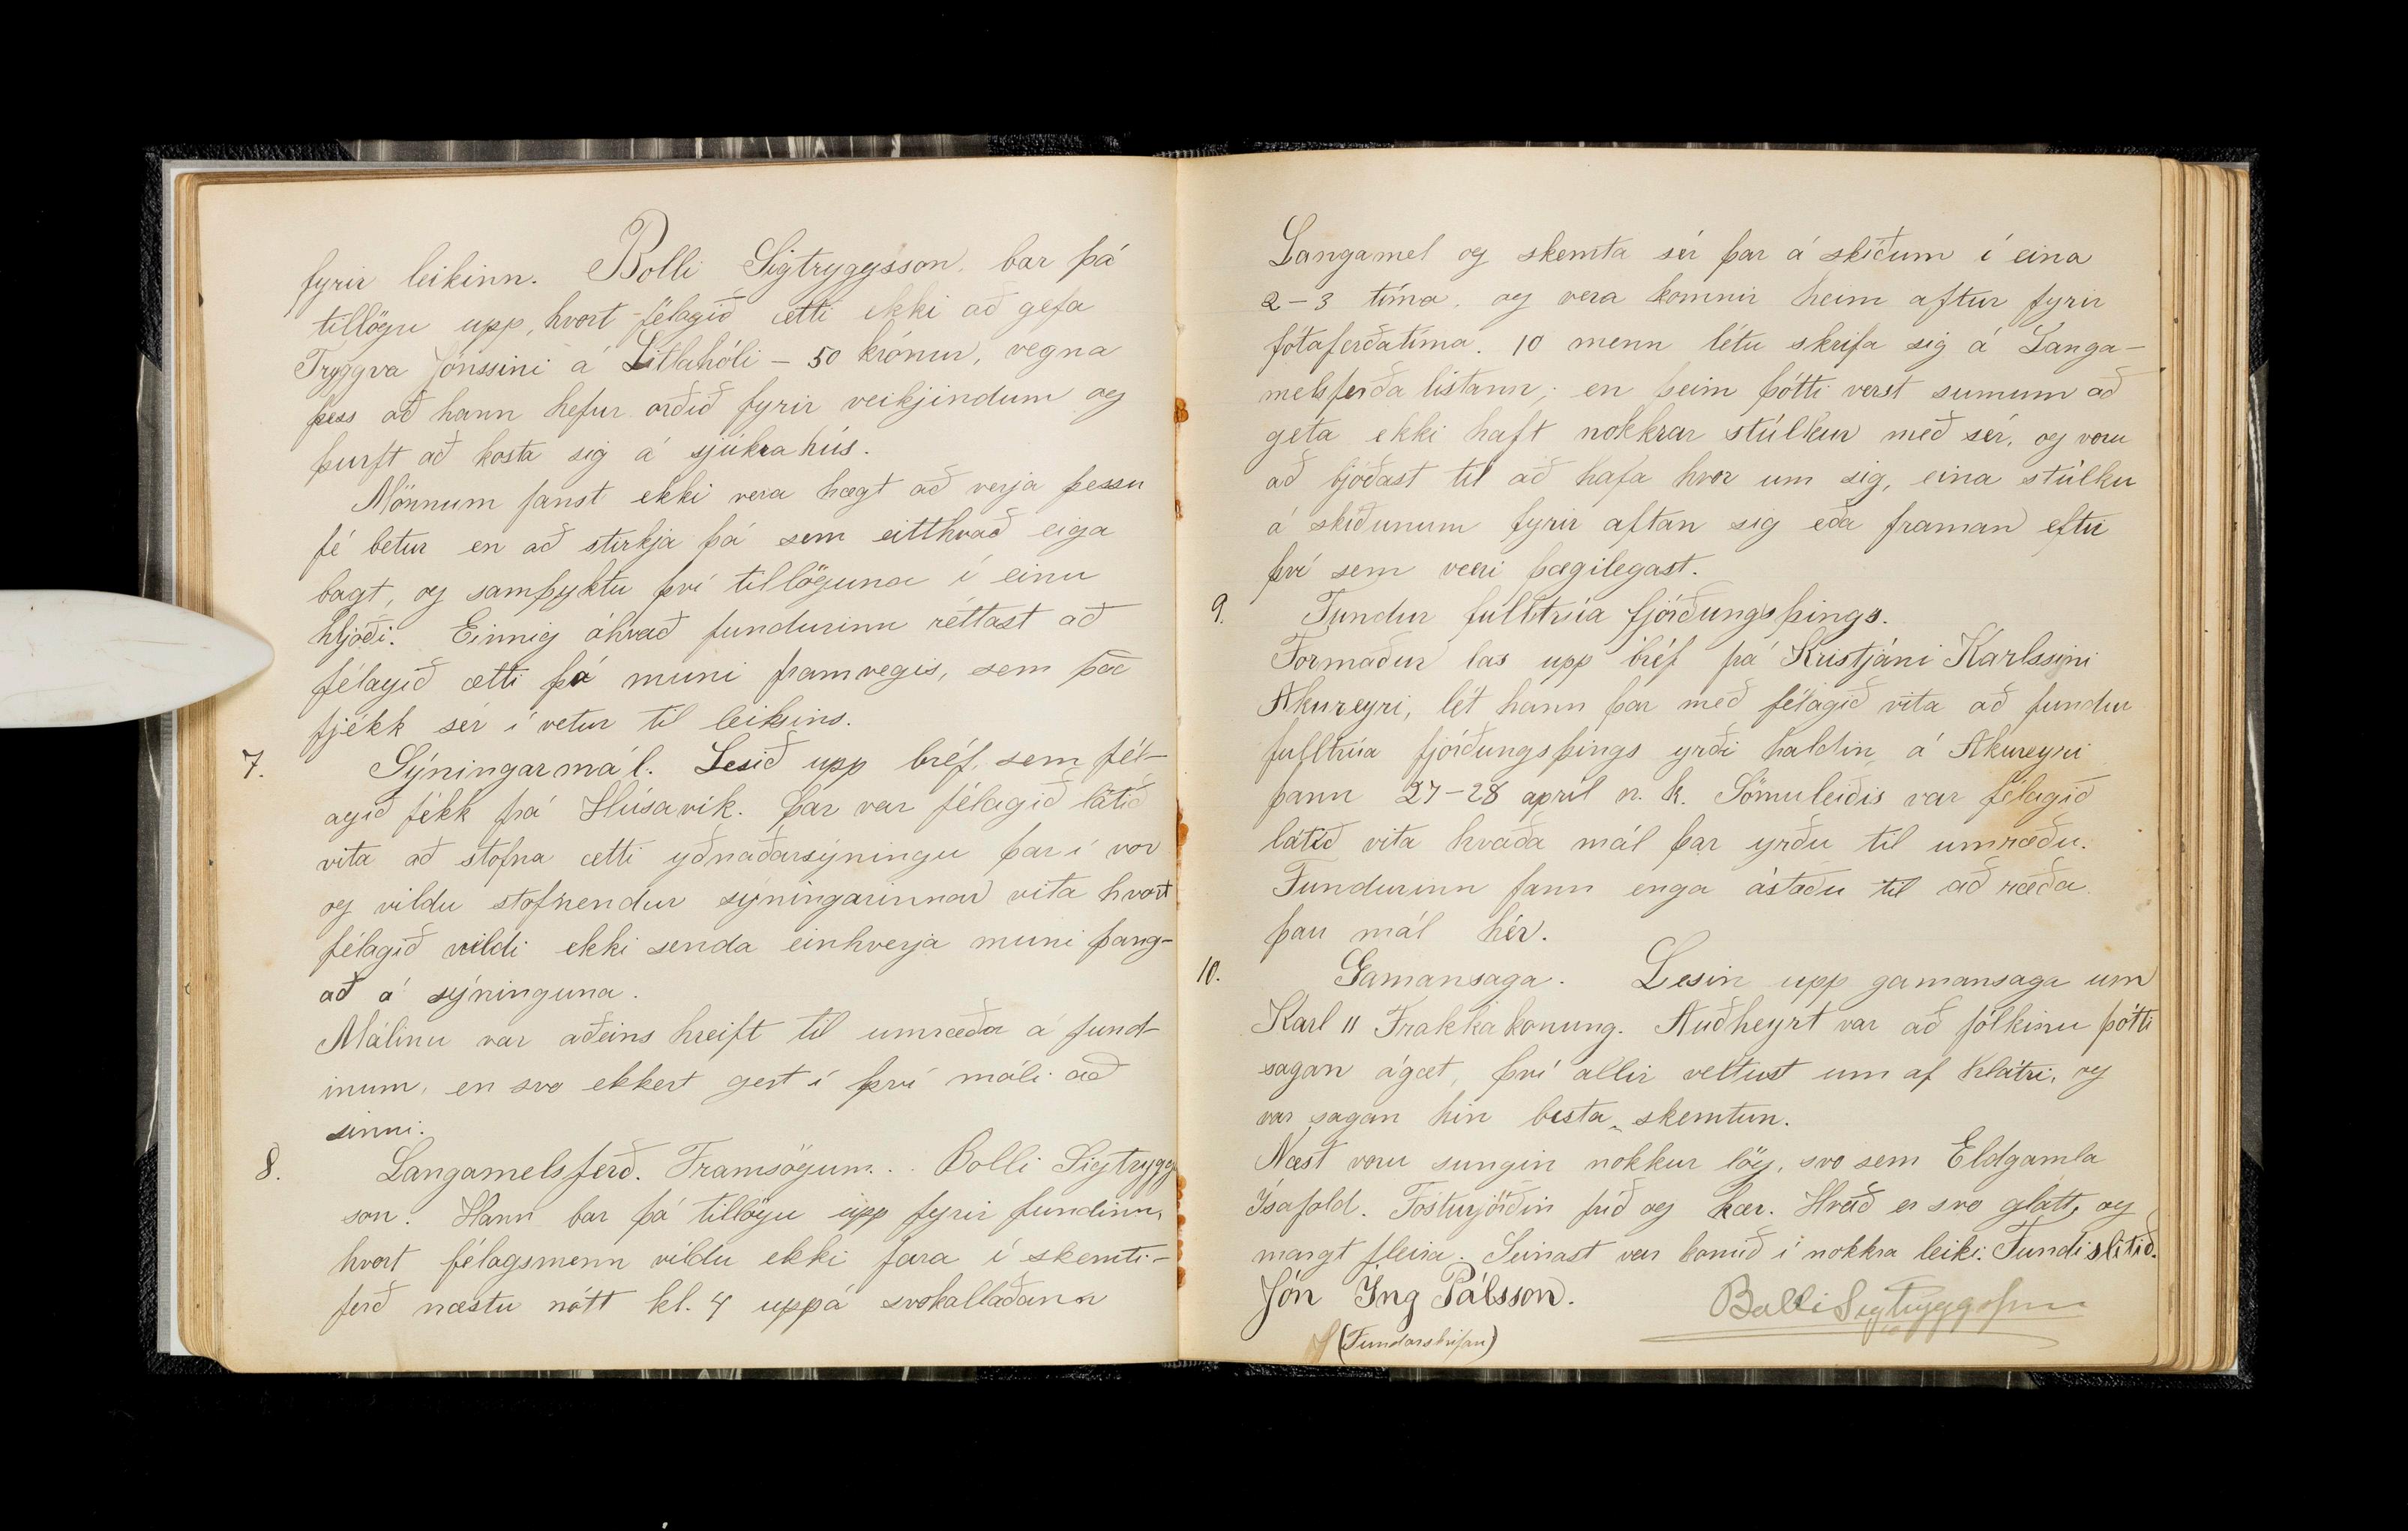 fyrir leikinn. Bolli Sigtryggsson. bar þá
tillögu upp, hvort félagið ætti ekki að gefa
Tryggva Jónssini á Litlahóli - 50 krónur, vegna
þess að hann hefur orðið fyrir veikjindum og
þurft að kosta sig á sjúkrahús.
Mönnum fanst ekki vera hægt að verja þessu
fé betur en að stirkja þá sem eitthvað eiga
bagt, og samþyktu því tillöguna í einu
hljóði. Einnig áhvað fundurinn réttast að
félagið ætti þá muni framvegis, sem það
fjékk sér í vetur til leiksins.
7. Sýningarmál. Lesið upp bréf, sem fél-
agið fékk frá Húsavík. Þar var félagið látið
vita að stofna ætti yðnaðarsýningu þar í vor
og vildu stofnendur sýningarinnar vita hvort
félagið vildi ekki senda einhverja muni þang-
að á sýninguna.
Málinu var aðeins hreift til umræða á fund-
inum, en svo ekkert gert í því máli að
sinni.
8. Langamelsferð. Framsögum. . Bolli Sigtrygg
son. Hann bar þá tillögu upp fyrir fundinn,
hvort félagsmenn vildu ekki fara í skemti-
ferð næstu nótt kl. 4 uppá svokallaðann
Langamel og skemta sér þar á skíðum í eina
2-3 tíma. og vera komnir heim aftur fyrir
fótaferðatíma. 10 menn létu skrifa sig á Langa-
melsferða listann; en þeim þótti verst sumum að
geta ekki haft nokkrar stúlkur með sér, og voru
að bjóðast til að hafa hvor um sig, eina stúlku
á skíðunum fyrir aftan sig eða framan eftir
því sem væri þægilegast.
9. Fundur fulltrúa fjórðungsþings.
Formaður las upp bréf frá Kristjáni Karlssyni
Akureyri, lét hann þar með félagið vita að fundur
fulltrúa fjórðungsþings yrði haldin á Akureyri
þann 27-28 apríl n. k. Sömuleiðis var félagið
látið vita hvaða mál þar yrðu til umræðu.
Fundurinn fann enga ástæðu til að ræða
þau mál hér.
10. Gamansaga. Lesin upp gamansaga um
Karl 11 Frakkakonung. Auðheyrt var að fólkinu þótti
sagan ágæt, því allir veltust um af hlátri, og
var sagan hin besta skemtun.
Næst voru sungin nokkur lög, svo sem Eldgamla
Ísafold. Fósturjörðin fríð og kær. Hvað er svo glatt, og
margt fleira. Seinast var komið í nokkra leiki. Fundi slitið.
Jón Ing Pálsson.
Bolli Sigtryggsson
(Fundarskrifari)